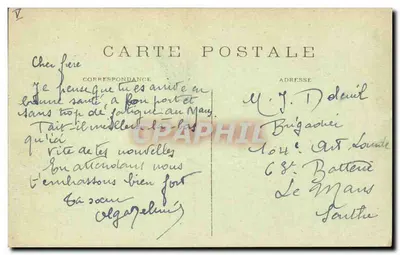 CARTE POSTALE
CORRESPONDANCE
ADRESSE
Cher frère
Je pense que tu es arrivé en
bonne santé, à bon port et
sans trop de fatigue au Mans
Fait-il meilleur là-bas
qu'ici
Vite de tes nouvelles
En attendant nous
t'embrassons bien fort
Ta soeur
Olga
M. J.
Brigadier
104e Art Lourde
68e Batterie
Le Mans
Sarthe